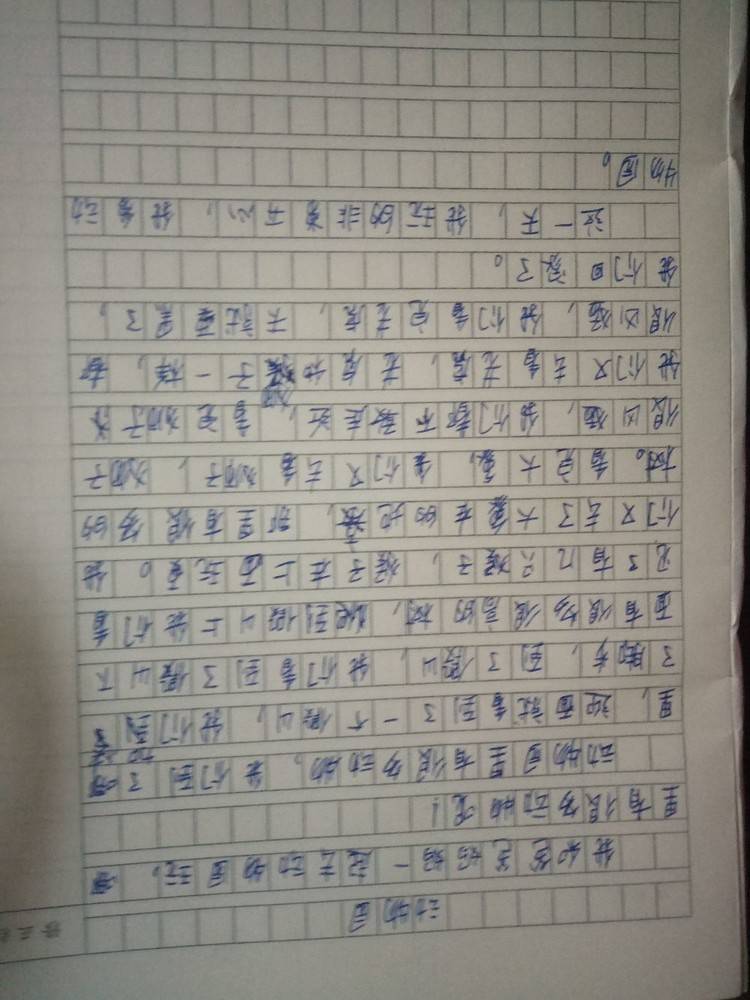 动物园
我和爸爸妈妈一起去动物园玩,那
里有很多动物呢!
动物园里有很多动物,我们到了
里,迎面就看到了一个假山,我们到
了假山,我们看到了假山下
面有很多很高的树,爬到假山上我们看
见了有几只猴子,猴子在上面玩耍。我
们又去了大象在的地方,那里有很多的
树。看完大象,我们又去看狮子,狮子
很凶猛,我们都不敢走近,看完狮子
我们又去看老虎,老虎和狮子一样,都
很凶猛,我们看完老虎,天就要黑了,
我们回家了。
这一天,我玩的非常开心,我爱动
物园。